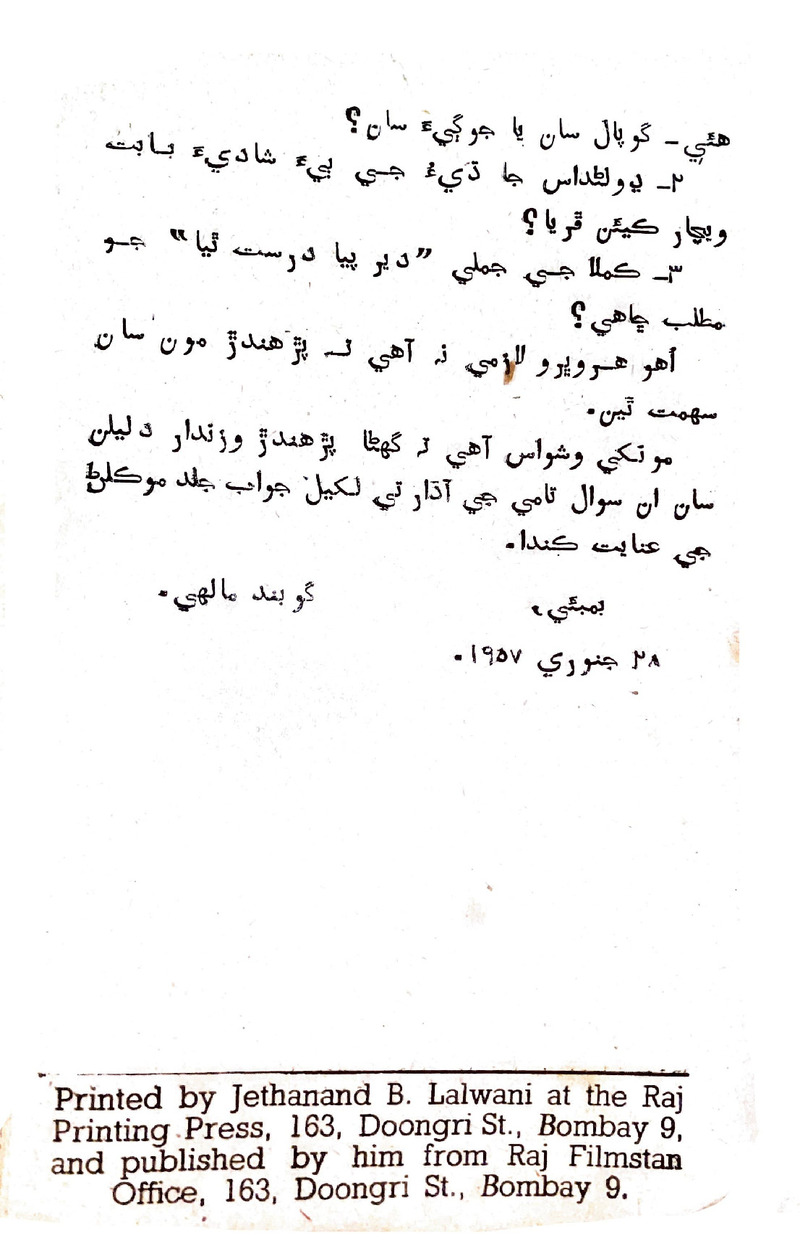 هئي۔ گوپال سان يا جوڳيءَ سان؟
٢۔ ڊولٿداس جا ڌيءُ جي ٻيءَ شاديءَ بابت
ويچار ڪيئن ڦريا؟
٣۔ ڪملا جي جملي ”دير پيا درست ٿيا“ جو
مطلب ڇاهي؟
اُهو هروڀرو لازمي نہ آهي تہ پڙهندڙ مون سان
سهمت ٿين.
مونکي وشواس آهي تہ گهڻا پڙهندڙ وزندار دليلن
سان ان سوال نامي جي آڌار تي لکيل جواب جلد موڪلڻ
جي عنايت ڪندا.
بمبئي، گوبند مالهي.
٢٨ جنوري ١٩٥٧.
Printed by Jethanand B. Lalwani at the Raj
Printing Press, 163, Doongri St., Bombay 9,
and published by him from Raj Filmstan
Office, 163, Doongri St., Bombay 9.